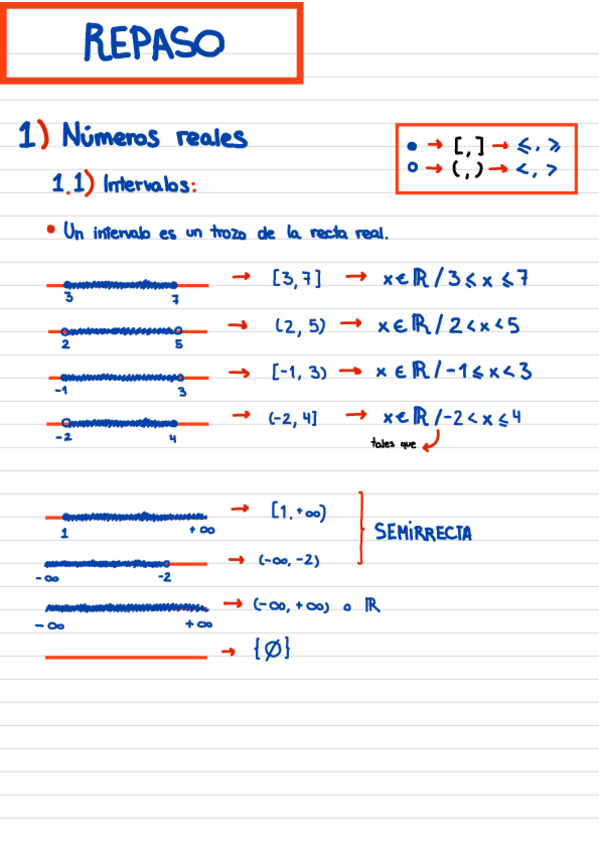 REPASO
1) Números reales
● → [,] → ⩽, ⩾
○ → (,) → <, >
1.1) Intervalos:
• Un intervalo es un trozo de la recta real.
3 7 → [3,7] → x∈ℝ/3⩽x⩽7
2 5 → (2,5) → x∈ℝ/2<x<5
-1 3 → [-1,3) → x∈ℝ/-1⩽x<3
-2 4 → (-2,4] → x∈ℝ/-2<x⩽4
tales que
1 +∞ → [1.+∞)
SEMIRRECTA
-∞ -2 → (-∞,-2)
-∞ +∞ → (-∞,+∞) o ℝ
→ {Ø}